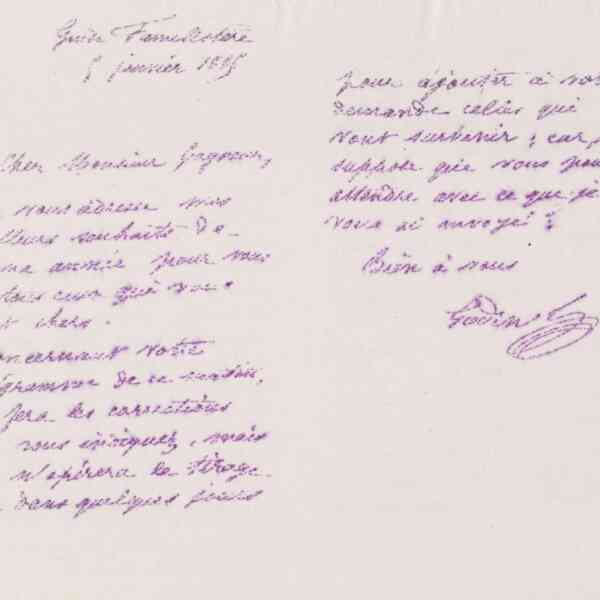 Guise Familistère
5 janvier 1885
Cher Monsieur Gagneur,
vous adresse mes
lleurs souhaits de
ne année pour vous
tous ceux qui vous
t chers.
oncernant votre
gramme de ce matin,
fera les corrections
vous indiquez, mais
n'opérera le tirage
dans quelques jours
pour ajouter à vos
demande celles qui
vont survenir ; car,
suppose que vous pou
attendre avec ce que je
vous ai envoyé ?
Bien à vous
Godin